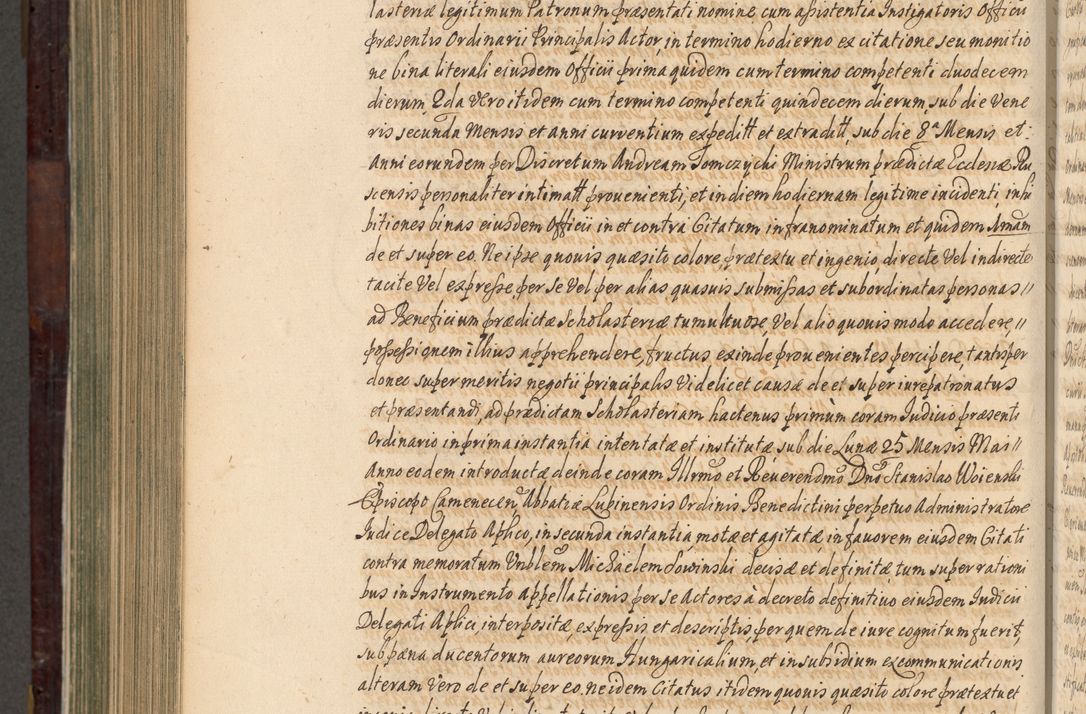 lasteriæ legitimum Patronum præsentati nomine cum assistentia Instigatoris Officii
præsentis Ordinarii Principalis Actor in termino hodierno ex citatione seu monitio
ne bina literali eiusdem Officii prima quidem cum termino competenti duodecem
dierum 2da vero itidem cum termino competenti quindecem dierum, sub die Vene
ris secunda Mensis et anni currentium expeditt et extraditt, sub die 8ª Mensis et
Anni eorundem per Discretum Andream Tomczycki Ministrum prædictæ Ecclesiæ Ru
scensis personaliter intimatt prouenienti, et in diem hodiernam legitime incidenti, inhi
bitiones binas eiusdem Officii in et contra Citatum infranominatum et quidem
de et super eo. Ne ipse quouis quæsito colore, prætextu et ingenio, directe Vel indirecte
tacite Vel expresse, per se Vel per alias quasuis submissas et subordinatas personas //
ad Beneficium prædictæ Scholasteriæ tumultuose, Vel alio quouis modo accedere //
possessionem illius apprehendere, fructus exinde prouenientes percipere, tantisper
donec super meritis negotii principalis Videlicet causæ de et super iurepatronatus
et præsentandi, ad prædictam Scholasteriam hactenus primùm coram Iudicio præsenti
Ordinario in prima instantia intentatæ et institutæ, sub die Lunæ 25 Mensis Maii //
Anno eodem introductæ deinde coram Illrmo et Reuerendmo Dno Stanislao Woienski
Episcopo Camenecen, Abbatiæ Lubinensis Ordinis Benedictini perpetuo Administratore
Iudice Delegato Aplico, in secunda instantia, motæ et agitatæ, in fauorem eiusdem Citati
contra memoratum Vnblem Michäelem Sowinski decisæ et definitæ, tum super rationi
bus in Instrumento appellationis per se Actores a decreto definitiuo eiusdem Iudicii
Delegati Aplici, interpositæ, expressis et descriptis, per quem de iure cognitum fuerit,
sub pæna ducentorum aureorum Hungaricalium, et in subsidium excommunicationis
alteram Vero de et super eo. ne idem Citatus itidem quouis quæsito colore prætextu et